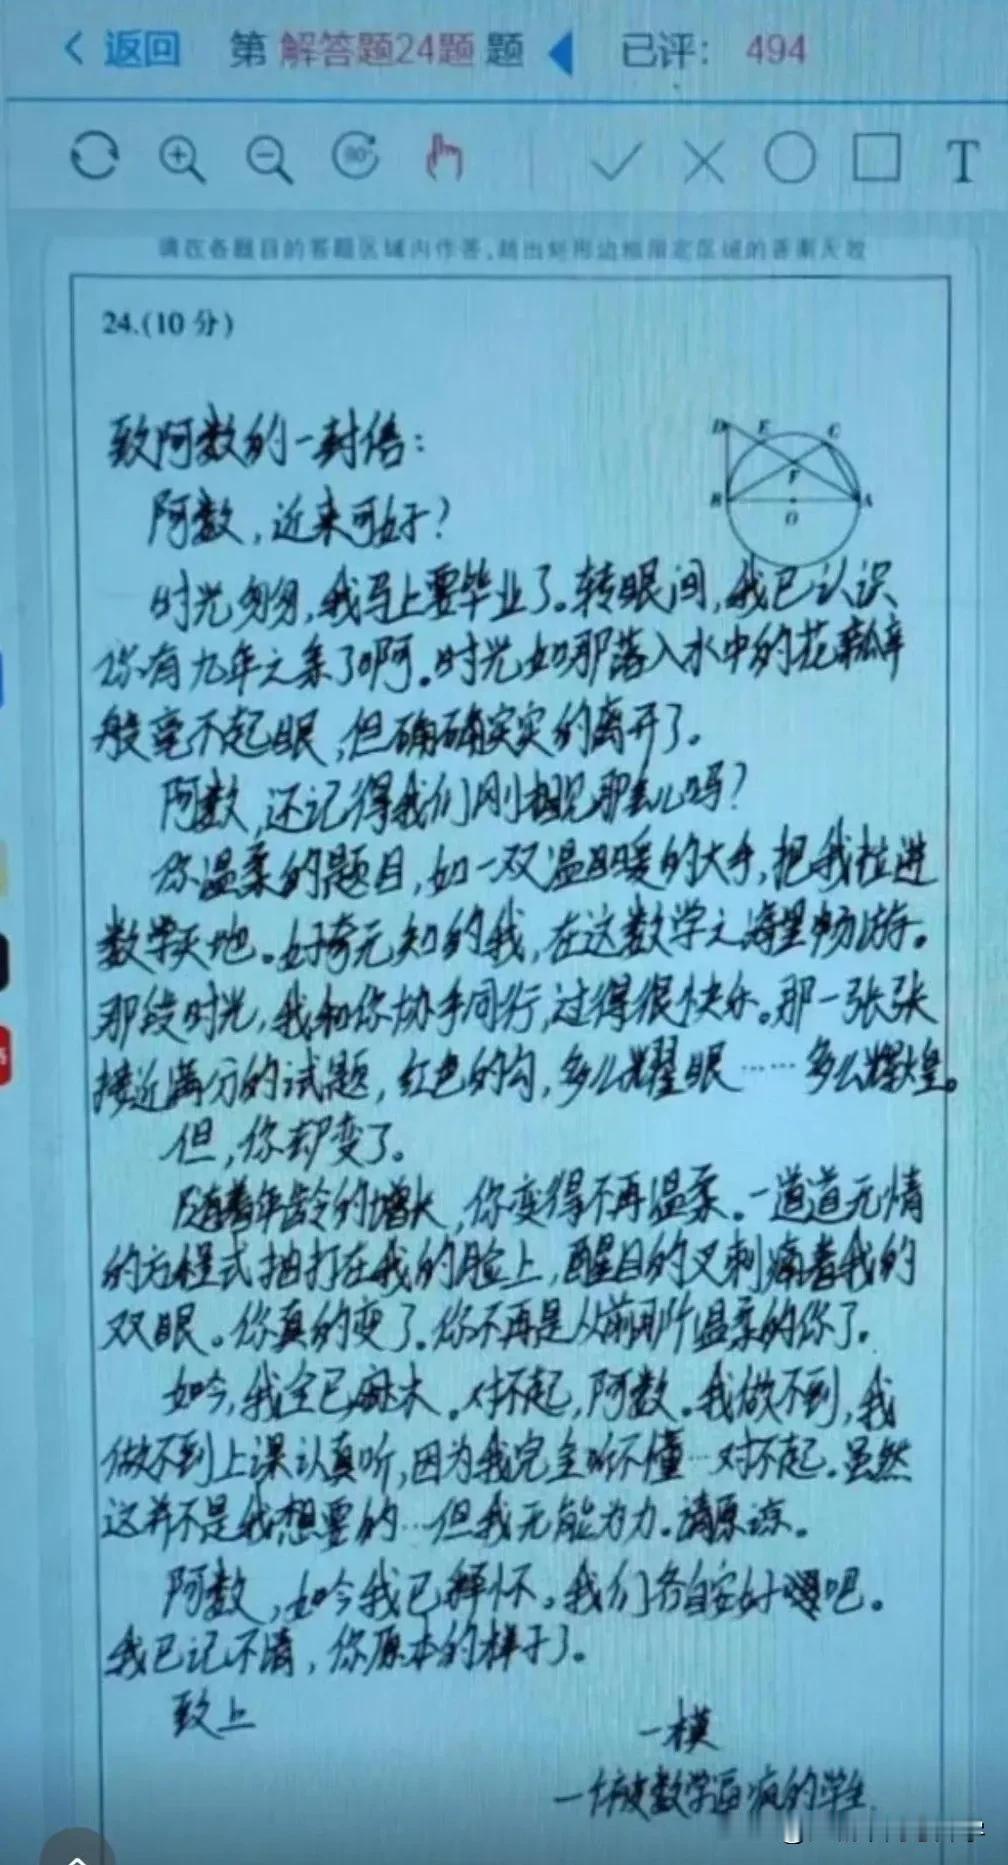 返回 第 解答题24题 题 已评： 494
80°
T
请在各题目的答题区域内作答，超出矩形边框限定区域的答案无效
24.(10 分)
致阿数的一封信：
D E C
F
B A
O
阿数，近来可好？
时光匆匆，我马上要毕业了。转眼间，我已认识
你有九年之条了啊。时光如那落入水中的花瓣
般毫不起眼，但确确实实的离开了。
阿数，还记得我们刚相见那会儿吗？
你温柔的题目，如一双温暖的大手，把我拉进
数学天地。好奇无知的我，在这数学之海里畅游。
那段时光，我和你协手同行，过得很快乐。那一张张
接近满分的试题，红色的勾，多么耀眼……多么辉煌。
但，你却变了。
随着年龄的增长，你变得不再温柔。一道道无情
的方程式抽打在我的脸上，醒目的叉刺痛着我的
双眼。你真的变了。你不再是从前那个温柔的你了。
如今，我全已麻木。对不起，阿数。我做不到，我
做不到上课认真听，因为我完全听不懂…对不起。虽然
这并不是我想要的…但我无能为力。请原谅。
阿数，如今我已释怀。我们各自安好吧。
我已记不清，你原本的样子了。
致上
一模
一个被数学逼疯的学生